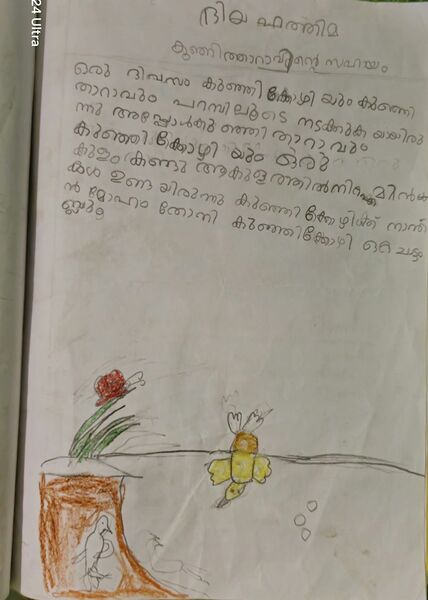 24 Ultra
ദിയ ഫാത്തിമ
കുഞ്ഞിത്താറാവിന്റെ സഹായം
ഒരു ദിവസം കുഞ്ഞി ക്കോഴി യും കുഞ്ഞി
താറാവും പറമ്പിലൂടെ നടക്കുക യായിരു
ന്നു അപ്പോൾകു ഞ്ഞി താറാ വും
കുഞ്ഞി ക്കോഴി യും ഒരു
കുളം കണ്ടു ആകുള ത്തിൽനിറച്ചു മീൻക
കൾ ഉണ്ടാ യിരുന്നു കുഞ്ഞി ക്കോഴിക്ക് നീന്തി
ൻ മോഹം തോന്നി കുഞ്ഞിക്കോഴി ഒറ്റ ചാട്ടം
ബ്ലും